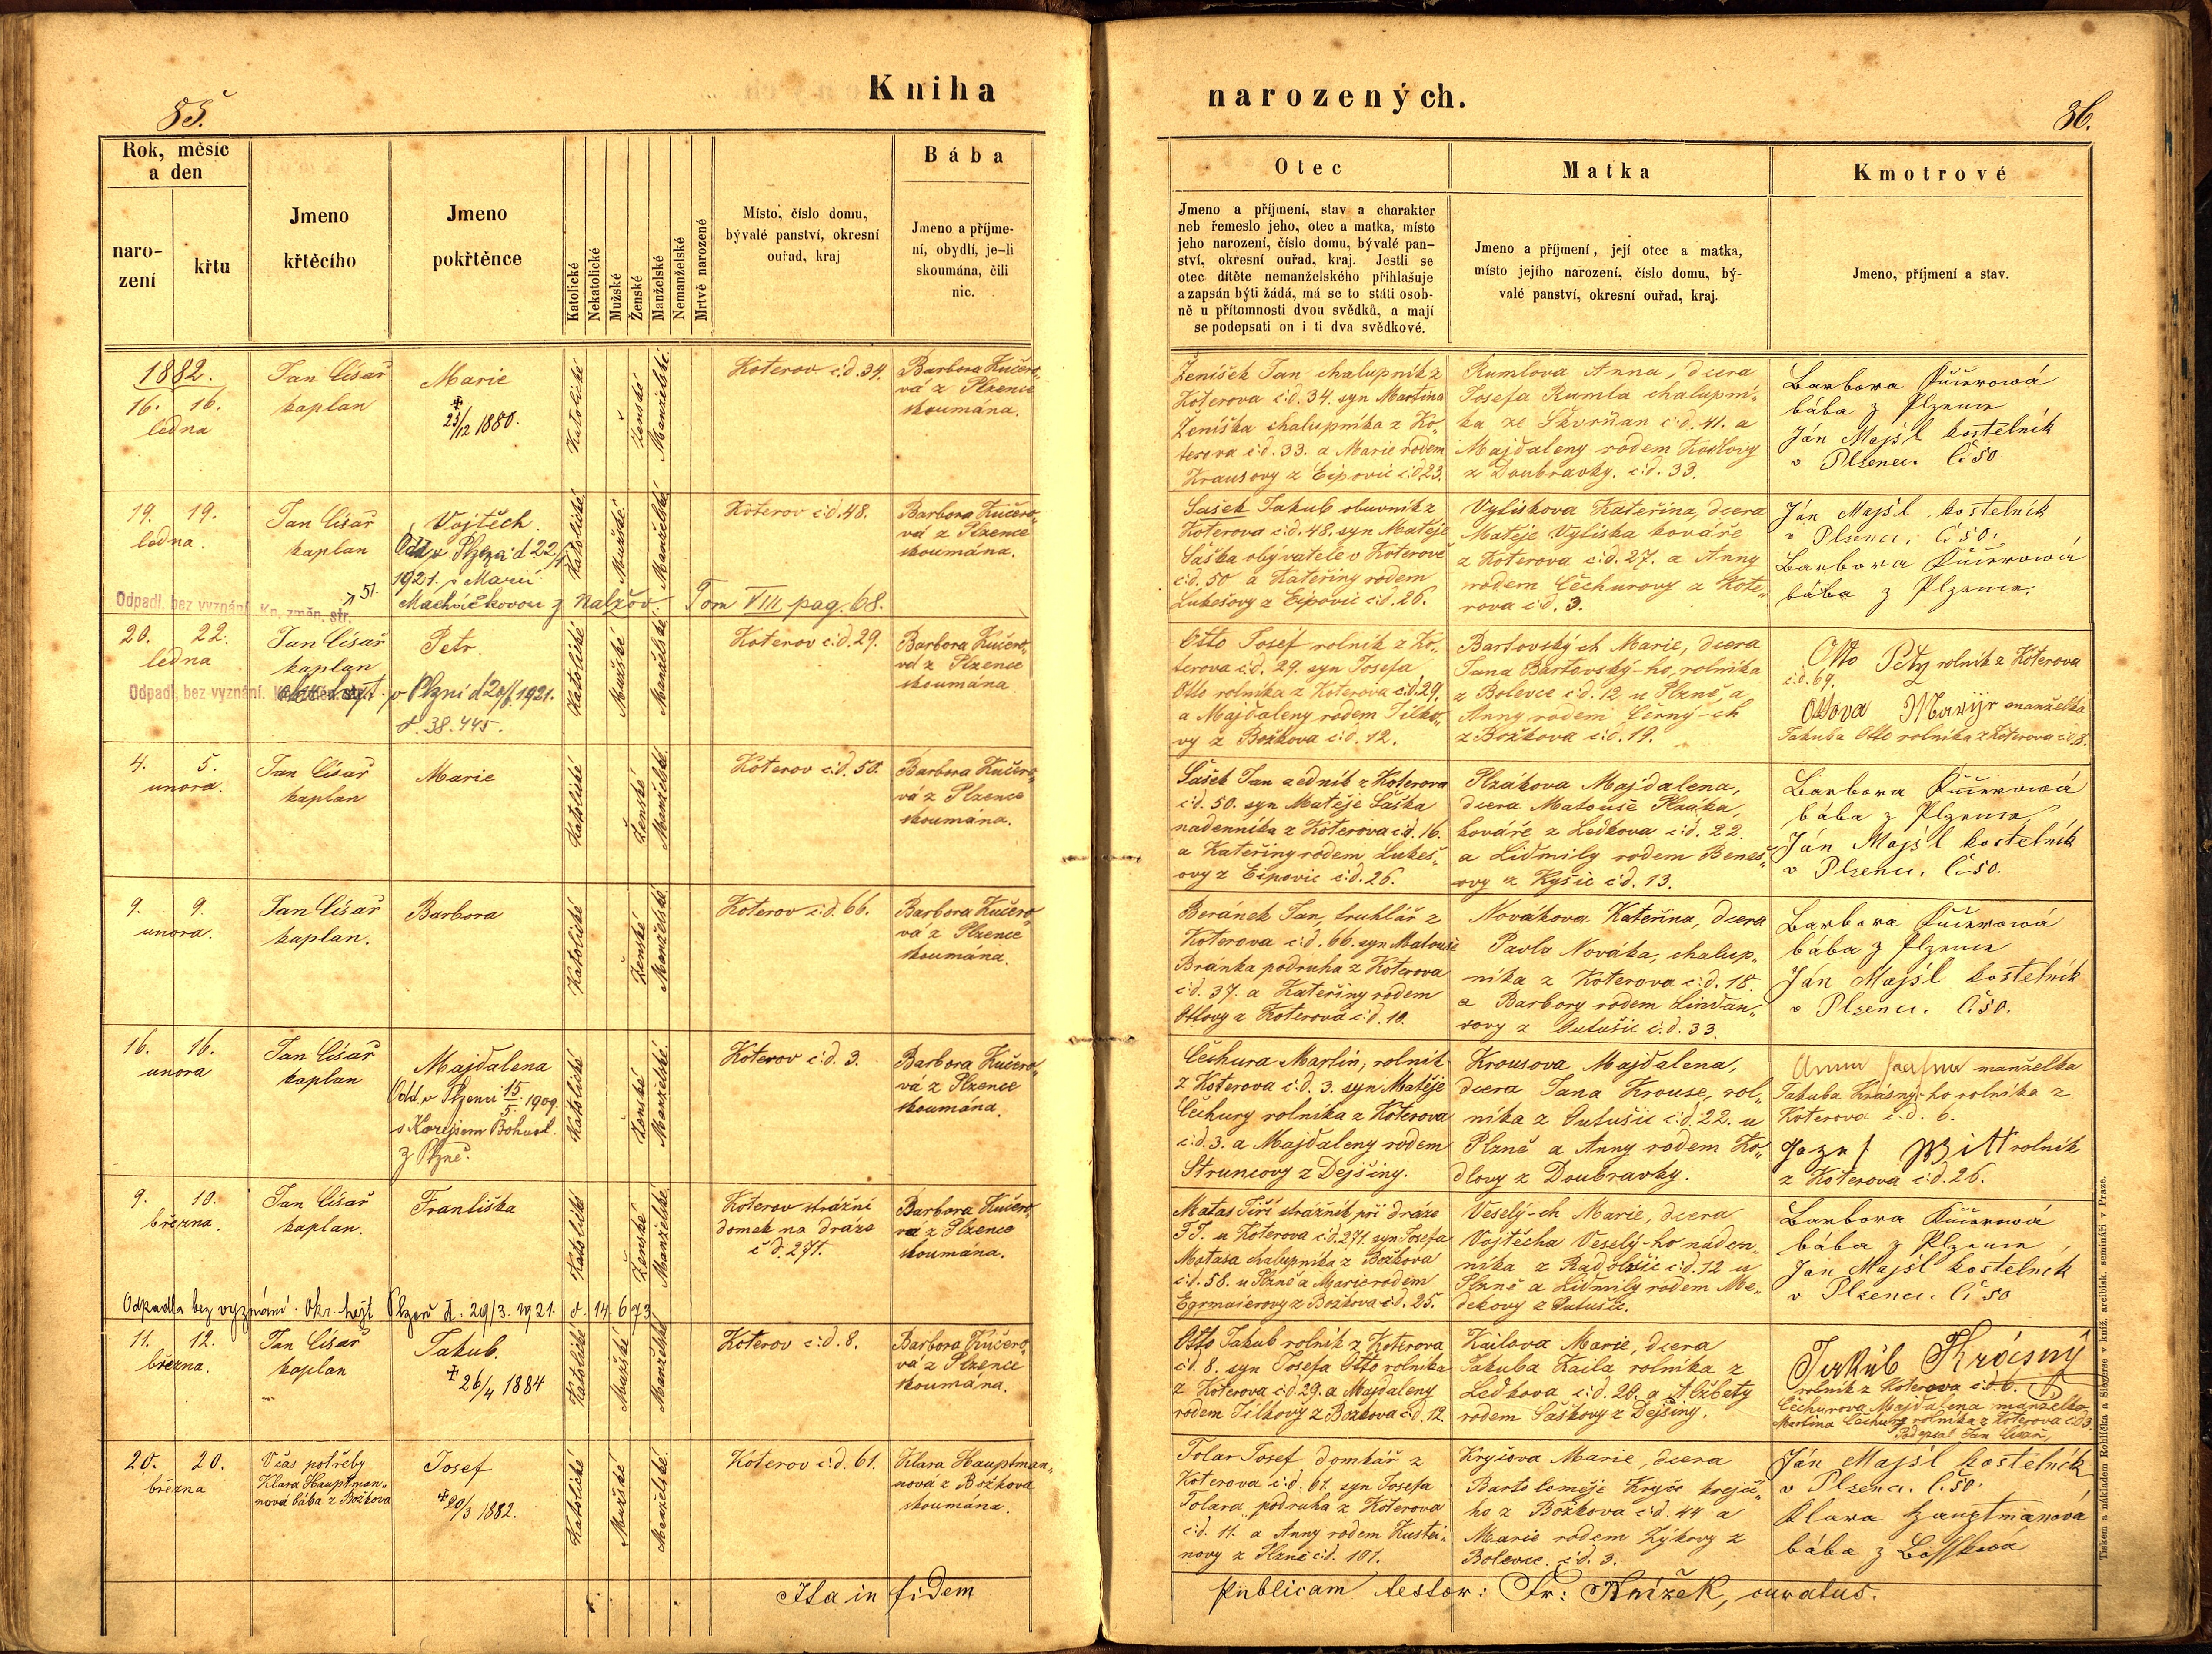 Kniha
narozených.
85.
86.
Rok, měsíc
a den
naro-
zení
křtu
Jmeno
křtěcího
Jmeno
pokřtěnce
Katolické
Nekatolické
Mužské
Ženské
Manželské
Nemanželské
Mrtvě narozené
Místo, číslo domu,
bývalé panství, okresní
ouřad, kraj
Bába
Jmeno a příjme-
ní, obydlí, je-li
skoumána, čili
nic.
Otec
Jmeno a příjmení, stav a charakter
neb řemeslo jeho, otec a matka, místo
jeho narození, číslo domu, bývalé pan-
ství, okresní ouřad, kraj. Jestli se
otec dítěte nemanželského přihlašuje
a zapsán býti žádá, má se to státi osob-
ně u přítomnosti dvou svědků, a mají
se podepsati on i ti dva svědkové.
Matka
Jmeno a příjmení, její otec a matka,
místo jejího narození, číslo domu, bý-
valé panství, okresní ouřad, kraj.
Kmotrové
Jmeno, příjmení a stav.
1882.
16. 16.
ledna
Jan Císař
kaplan
Marie
✠
23/12 1880.
Katolické
Ženské
Manželské
Koterov č:d. 34.
Barbora Kučero-
vá z Plzence
skoumána.
Ženíšek Jan chalupník z
Koterova č:d. 34. syn Martina
Ženíška chalupníka z Ko-
terova č:d. 33. a Marie rodem
Krausovy z Eipovic č:d. 23.
Rumlova Anna, dcera
Josefa Rumla chalupní-
ka ze Skvrňan č:d. 41. a
Majdaleny rodem Kodlovy
z Doubravky. č:d. 33.
Barbora Kučerowá
bába z Plzence
Ján Majsl kostelník
v Plzenci. č. 50
19. 19.
ledna.
Jan Císař
kaplan
Vojtěch.
Odd. v Plzni d 22/
1921. s Marií
Macháčkovou z Nalžov Tom VIII pag. 68.
51.
Odpadl, bez vyznání. Kn. změn. str.
Katolické
Mužské
Manželské
Koterov č:d. 48.
Barbora Kučero-
vá z Plzence
skoumána.
Šašek Jakub obuvník z
Koterova č:d. 48. syn Matěje
Šaška obývatele v Koterově
č:d. 50 a Kateřiny rodem
Lukešovy z Eipovic č:d. 26.
Vyliskova Kateřina, dcera
Matěje Vyliska kováře
z Koterova č:d. 27. a Anny
rodem Čechurovy z Kote-
rova č:d. 3.
Ján Majsl kostelník
v Plzenci, č. 50.
Barbora Kučerowá
bába z Plzence.
20. 22.
ledna
Jan Císař
kaplan
Petr.
Odpadl, bez vyznání.
v Plzni d 20/ 1921.
č. 38.445.
Katolické
Mužské
Manželské
Koterov č:d. 29.
Barbora Kučero-
vá z Plzence
skoumána
Otto Josef rolník z Ko-
terova č:d. 29. syn Josefa
Otto rolníka z Koterova č:d. 29.
a Majdaleny rodem Tilko-
vy z Božkova č:d. 12.
Bartovský-ch Marie, dcera
Jana Bartovský-ho, rolníka
z Bolevce č:d. 12. u Plzně, a
Anny rodem Černý-ch
z Božkova č:d. 19.
Otto Petr rolník z Koterova
č:d. 69.
Ottova Marije manželka
Jakuba Otto rolníka z Koterova č:d. 8.
4. 5.
unora.
Jan Císař
kaplan
Marie
Katolické
Ženské
Manželské
Koterov č:d. 50.
Barbora Kučero-
vá z Plzence
skoumána.
Šašek Jan zedník z Koterova
č:d. 50. syn Matěje Šaška
nadenníka z Koterova č:d. 16.
a Kateřiny rodem Lukeš-
ovy z Eipovic č:d. 26.
Plzákova Majdalena,
dcera Matouše Plzáka,
kováře z Ledkova č:d. 22.
a Lidmily rodem Beneš-
ovy z Kyšic č:d. 13.
Barbora Kučerowá
bába z Plzence,
Ján Majsl kostelník
v Plzenci. č. 50.
9. 9.
unora.
Jan Císař
kaplan.
Barbora
Katolické
Ženské
Manželské
Koterov č:d. 66.
Barbora Kučero-
vá z Plzence
skoumána.
Beránek Jan, truhlář z
Koterova č:d. 66. syn Matouše
Bránka podruha z Koterova
č:d. 37. a Kateřiny rodem
Ottovy z Koterova č:d. 10.
Novákova Kateřina, dcera
Pavla Nováka, chalup-
níka z Koterova č:d. 18.
a Barbory rodem Lindau-
rovy z Lutušic č:d. 33.
Barbora Kučerowá
bába z Plzence
Ján Majsl kostelník
v Plzenci. č. 50.
16. 16.
unora
Jan Císař
kaplan
Majdalena
Odd. v Plzenci 15/5. 1909.
s Korejsem Bohusl.
z Plzně.
Katolické
Ženské
Manželské.
Koterov č:d. 3.
Barbora Kučero-
vá z Plzence
skoumána.
Čechura Martin, rolník
z Koterova č:d. 3. syn Matěje
Čechury rolníka z Koterova
č:d. 3. a Majdaleny rodem
Struncovy z Dejšiny.
Krousova Majdalena,
dcera Jana Krouse, rol-
níka z Lutušic č:d. 22. u
Plzně a Anny rodem Ko-
dlovy z Doubravky.
Anna manželka
Jakuba Krásný-ho rolníka z
Koterova č.d. 6.
Jozef Witt rolník
z Koterova č:d. 26.
9. 10.
března.
Jan Císař
kaplan.
Františka
Katolické
Ženské
Manželské
Koterov strážní
domek na dráze
č:d. 271.
Barbora Kučero-
vá z Plzence
skoumána.
Matas Jiří strážník při dráze
F.J. u Koterova č:d. 271. syn Josefa
Matasa chalupníka z Božkova
č:d. 58. u Plzně a Marie rodem
Egrmaierovy z Božkova č:d. 25.
Veselý-ch Marie, dcera
Vojtěcha Veselý-ho náden-
níka z Radobšic č:d. 12 u
Plzně a Lidmily rodem Me-
dekovy z Lutušic.
Barbora Kučerowá
bába z Plzence,
Jan Majsl kostelnik
v Plzenci. č. 50
Odpadla bez vyznání. Okr. hejt Plzeň d. 29/3. 1921. č. 14.673
11. 12.
března.
Jan Císař
kaplan
Jakub.
✠ 26/4 1884
Katolické
Mužské
Manželské
Koterov č:d. 8.
Barbora Kučero-
vá z Plzence
skoumána.
Otto Jakub rolník z Koterova
č:d. 8. syn Josefa Otto rolníka
z Koterova č:d. 29. a Majdaleny
rodem Tilkovy z Božkova č:d. 12.
Kailova Marie, dcera
Jakuba Kaila rolníka z
Ledkova č:d. 20. a Alžbety
rodem Šaškovy z Dejšiny.
Jakub Krásný
rolník z Koterova č:d. 6.
Čechurova Majdalena manželka
Martina Čechury rolníka z Koterova č:d. 3
Podepsal Jan Císař,
20. 20.
března
V čas potřeby
Klara Hauptman-
nová bába z Božkova
Josef
✠ 20/3 1882.
Katolické
Mužské
Manželské.
Koterov č:d. 61.
Klara Hauptman-
nová z Božkova
skoumána.
Tolar Josef domkář z
Koterova č:d. 61. syn Josefa
Tolara podruha z Koterova
č:d. 11. a Anny rodem Kustei-
novy z Plzně č:d. 101.
Kryčova Marie, dcera
Bartoloměje Kryče krejčí-
ho z Božkova č:d. 44 a
Marie rodem Zýkovy z
Bolevce. č:d. 3.
Ján Majsl kostelník
v Plzenci. č. 50.
Klara Hauptmanová
bába z Bosskova
Ita in fidem
publicam testor: Fr: Knížek, curatus.
Tiskem a nákladem Rohlíčka a Sieverse v kníž. arcibisk. semináři v Praze.